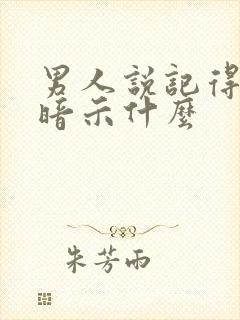 男人說記得
暗示什麼
朱芳雨